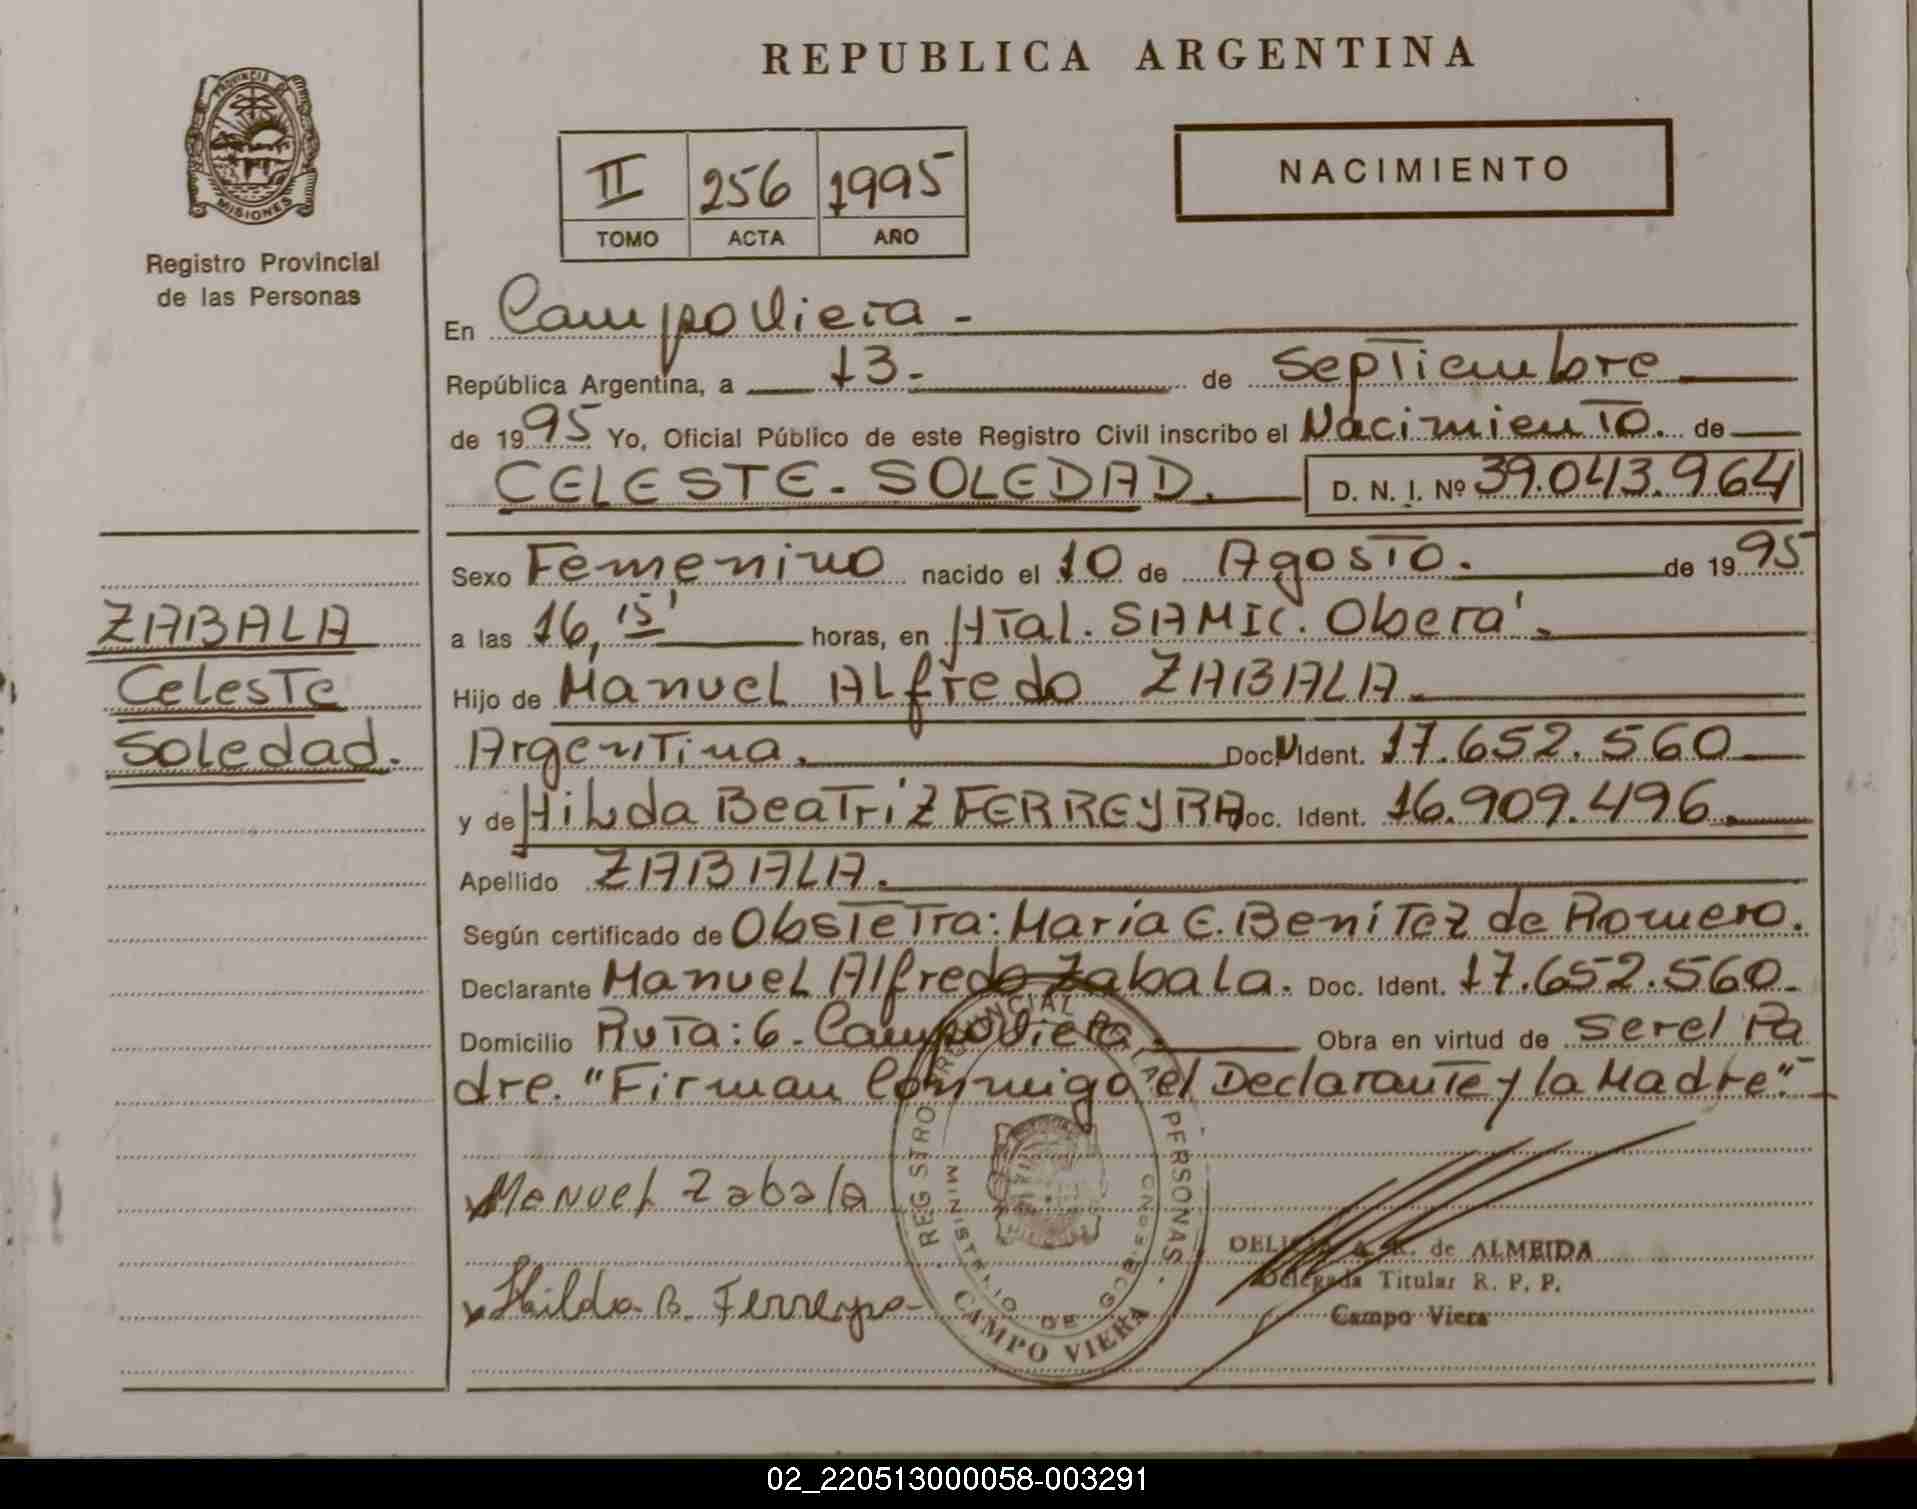 REPUBLICA ARGENTINA
PROVINCIA DE
MISIONES
Registro Provincial
de las Personas
II 256 1995
TOMO ACTA AÑO
NACIMIENTO
En Campo Viera -
República Argentina, a 13- de Septiembre
de 1995 Yo, Oficial Público de este Registro Civil inscribo el Nacimiento. de
CELESTE - SOLEDAD. D. N. I. Nº 39.043.964
Sexo Femenino nacido el 10 de Agosto. de 1995
a las 16,15' horas, en Htal. SAMIC. Oberá.
Hijo de Manuel Alfredo ZABALA
Argentina. Doc N Ident. 17.652.560
y de Hilda Beatriz FERREYRA Doc. Ident. 16.909.496.
Apellido ZABALA.
Según certificado de Obstetra: María E. Benítez de Romero.
Declarante Manuel Alfredo Zabala. Doc. Ident. 17.652.560.
Domicilio Ruta: 6 - Campo Viera. Obra en virtud de ser el Pa
dre. "Firman conmigo el Declarante y la Madre".-
ZABALA
Celeste
Soledad.
Manuel Zabala
Hilda B. Ferreyra
REGISTRO PROVINCIAL DE LAS PERSONAS
MINISTERIO DE GOBIERNO
CAMPO VIERA
DELICIA A. R. de ALMEIDA
Delegada Titular R. P. P.
Campo Viera
02_220513000058-003291